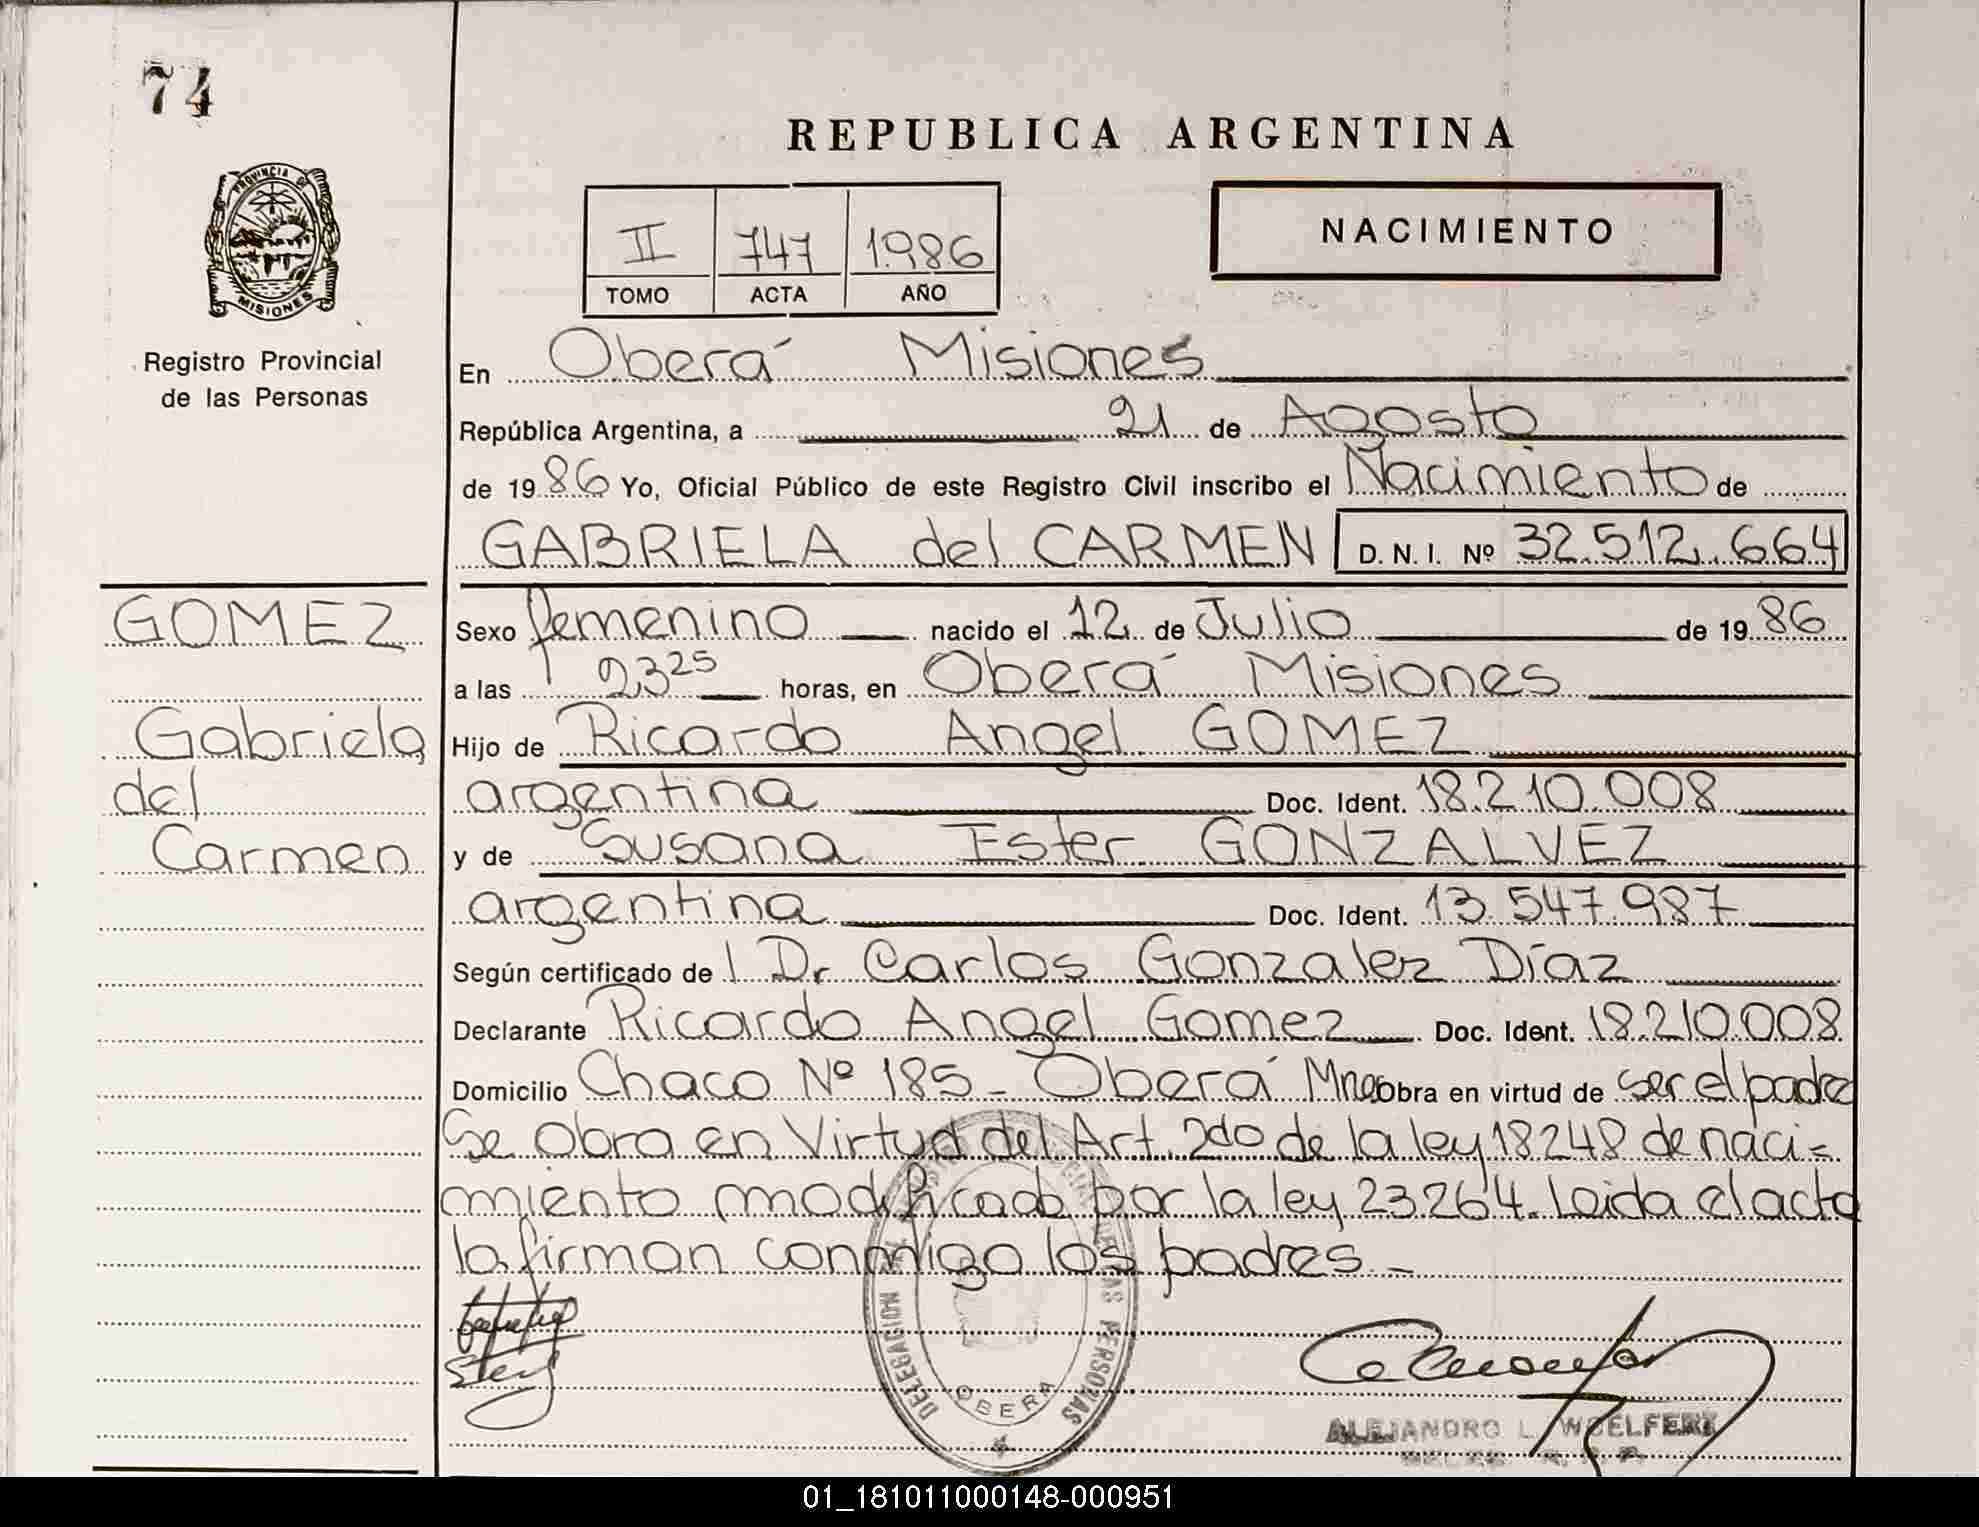 74
REPUBLICA ARGENTINA
PROVINCIA DE
MISIONES
II 747 1986
TOMO ACTA AÑO
NACIMIENTO
Registro Provincial
de las Personas
En Oberá Misiones
República Argentina, a 21 de Agosto
de 1986 Yo, Oficial Público de este Registro Civil inscribo el Nacimiento de
GABRIELA del CARMEN D.N.I. Nº 32.512.664
GOMEZ
Gabriela
del
Carmen
Sexo femenino nacido el 12 de Julio de 1986
a las 23 25 horas, en Oberá Misiones
Hijo de Ricardo Angel GOMEZ
argentina Doc. Ident. 18.210.008
y de Susana Ester GONZALVEZ
argentina Doc. Ident. 13.547.987
Según certificado del Dr Carlos Gonzalez Díaz
Declarante Ricardo Angel Gomez Doc. Ident. 18.210.008
Domicilio Chaco Nº 185 - Oberá Mnes Obra en virtud de ser el padre
Se obra en Virtud del Art. 2do de la ley 18248 de naci-
miento modificado por la ley 23.264. Leida el acta
la firman conmigo los padres. -
DELEGACION
PERSONAS
OBERA
ALEJANDRO L. WOELFERT
01_181011000148-000951